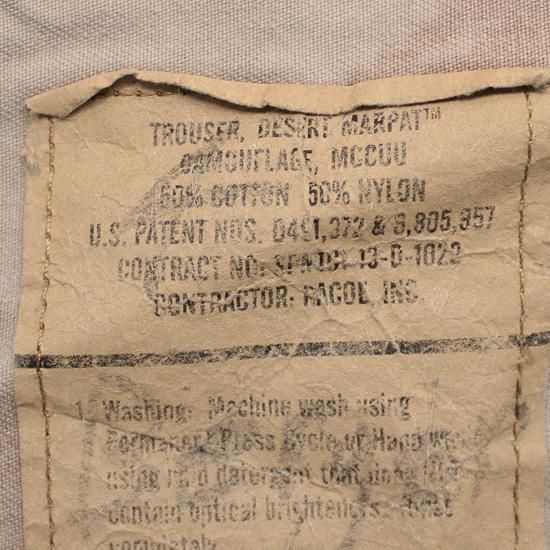 TROUSER, DESERT MARPAT™
CAMOUFLAGE, MCCUU
50% COTTON 50% NYLON
U.S. PATENT NOS. D491,372 & 6,805,957
CONTRACT NO: 13-D-1022
CONTRACTOR: RACOE, INC.
1. Washing: Machine wash using
Permanent Press Cycle or Hand wash
using mild detergent that does
contain optical brighteners. Rinse
completely